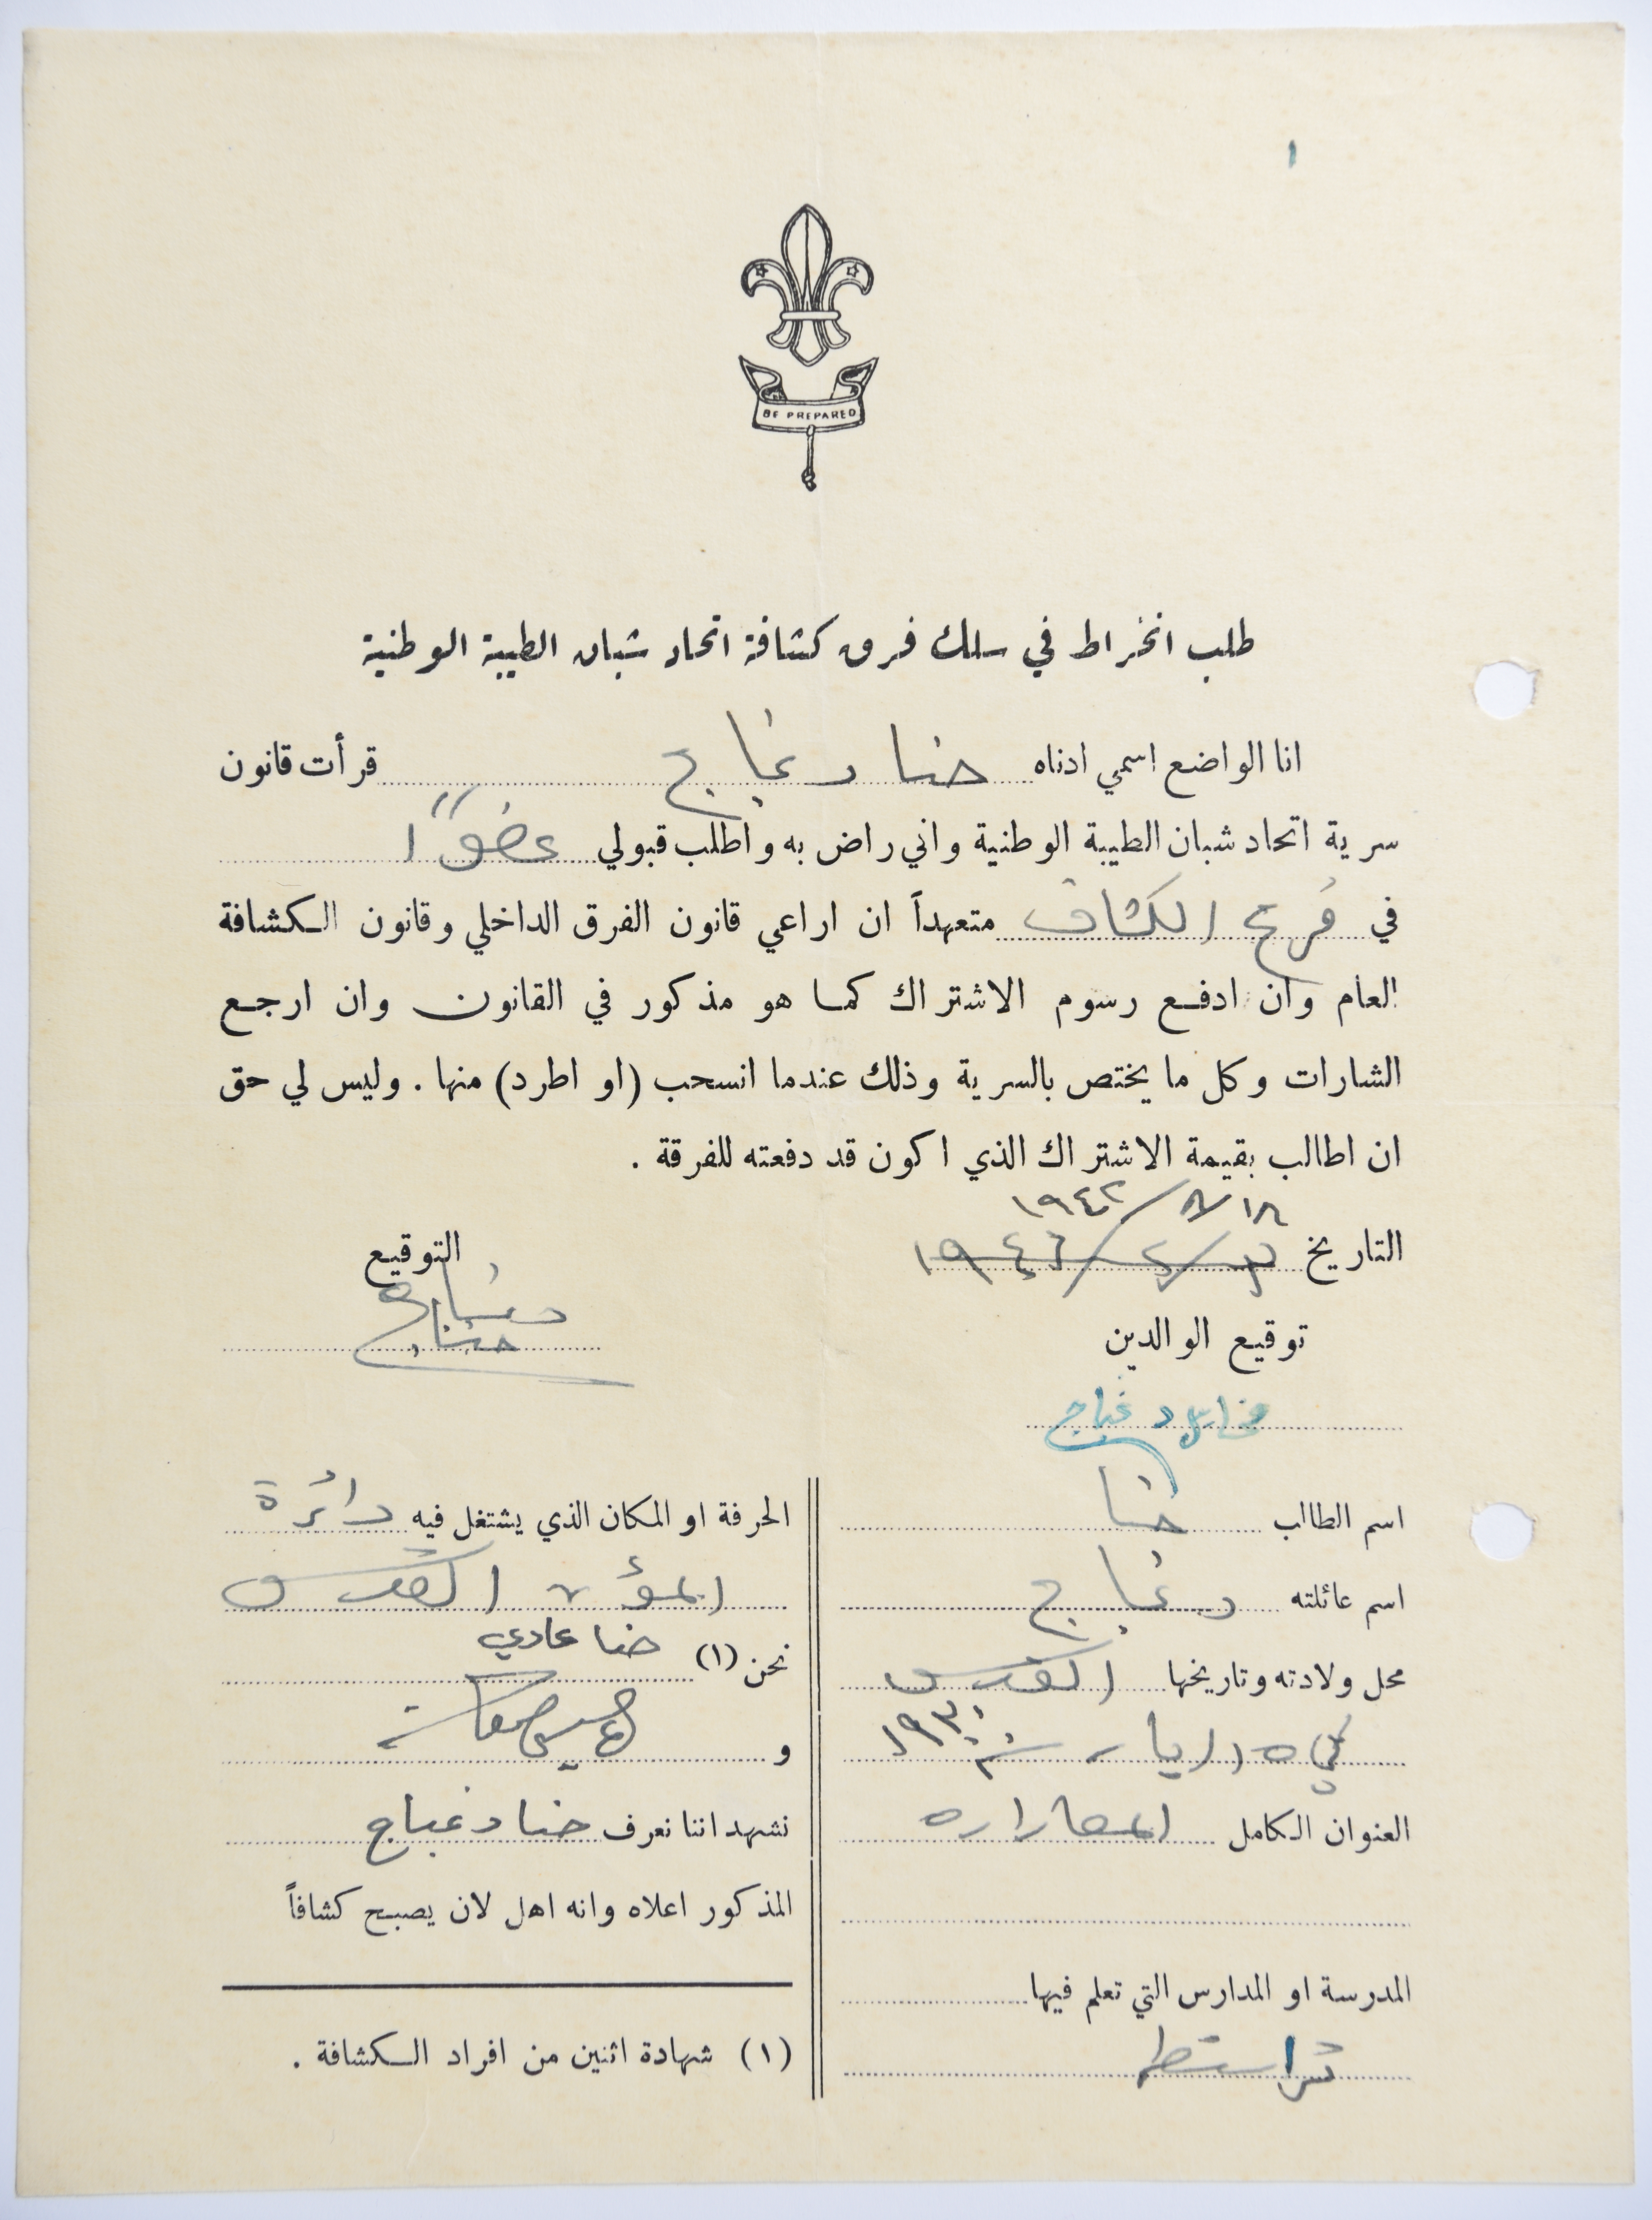 ١
BE PREPARED
طلب انخراط في سلك فرق كشافة اتحاد شبان الطيبة الوطنية
انا الواضع اسمي ادناه حنا دغباج قرأت قانون
سرية اتحاد شبان الطيبة الوطنية واني راض به واطلب قبولي عضوًا
في فرع الكشاف متعهداً ان اراعي قانون الفرق الداخلي وقانون الكشافة
العام وان ادفع رسوم الاشتراك كما هو مذكور في القانون وان ارجع
الشارات وكل ما يختص بالسرية وذلك عندما انسحب (او اطرد) منها . وليس لي حق
ان اطالب بقيمة الاشتراك الذي اكون قد دفعته للفرقة .
١٨/٨/١٩٤٢
التاريخ
التوقيع
حنا
توقيع الوالدين
دغباج
اسم الطالب حنا
اسم عائلته دغباج
محل ولادته وتاريخها القدس
في ٥ ايار سنة ١٩٣٠
العنوان الكامل المصراره
المدرسة او المدارس التي تعلم فيها
تراسنطه
الحرفة او المكان الذي يشتغل فيه دائرة
المؤن القدس
نحن (١) حنا عادي
و
نشهد اننا نعرف حنا دغباج
المذكور اعلاه وانه اهل لان يصبح كشافاً
(١) شهادة اثنين من افراد الكشافة .